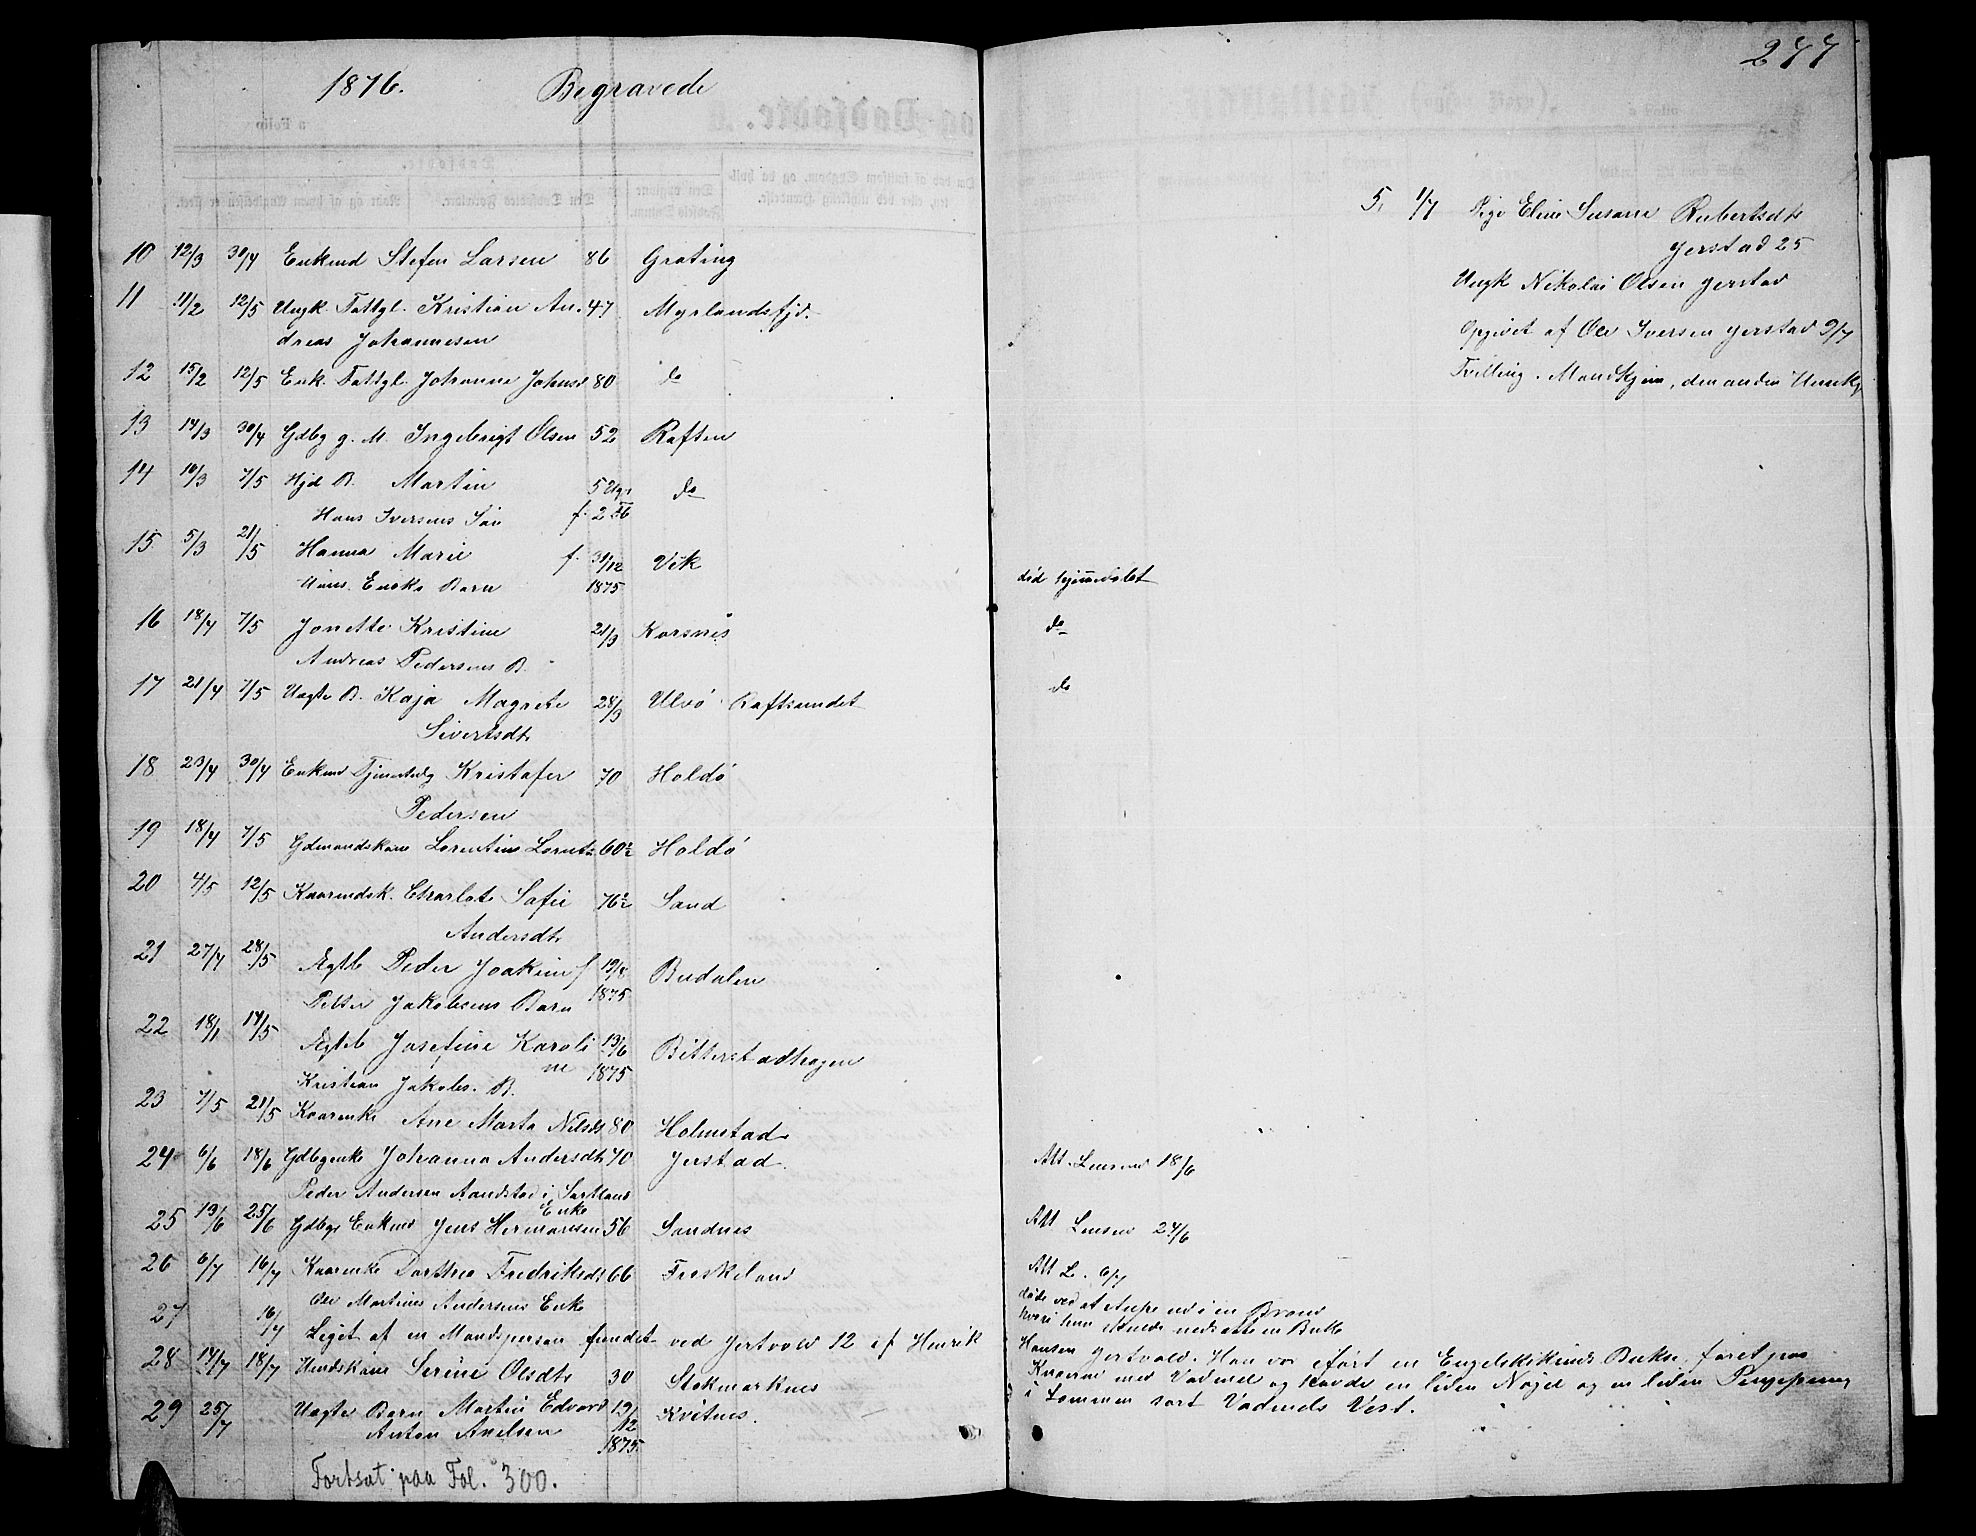 1876. Begravede
277
10 12/3 30/4 Enkmd Stefen Larsen 86 Grøting
11 11/2 12/5 Ungk. Fattgl. Kristian An- 47 Myrlandsfjd.
dreas Johannesen
12 15/2 12/5 Enk. Fattgl. Johanna Johnsd 80 do
13 14/3 30/4 Gdbg g. M. Ingebrigt Olsen 52 Raften
14 16/3 7/5 Hjd B. Martin 5 Ugr do
Hans Iversens Søn f. 2
15 5/3 21/5 Hanna Marie f. 31/12 Vik
Barn 1875
16 18/4 7/5 Jonette Kristine 21/3 Korsnes
Andreas Pedersens B.
17 21/4 7/5 Uægte B. Kaja Magrete 28/3 Ulvø Raftsundet
Sivertsdt
18 23/4 30/4 Enkmd Kristofer 70 Holdø
Pedersen
19 18/4 7/5 Gdmandskone Lorentine Lorntz 60½ Holdø
20 4/5 12/5 Kaarmdsk. Charlot Sofie 76½ Sand
Andersdt
21 27/4 28/5 Ægtb Peder Joakim f 19/8 Budalen
Petter Jakobsens Barn 1875
22 18/1 14/5 Ægteb Josefine Karoli 13/6 Bitterstadhagen
ne 1875
Kristian Jakobs. B.
23 7/5 21/5 Kaarenke Ane Marta Nilsdt 80 Holmstad
24 6/6 18/6 Gdbgenke Johanna Andersdt 70 Jerstad
Peder Andersen Aandstad i Sortland
Enke
25 13/6 25/6 Gdbg Enkmd Jens Hermansen 56 Sandnes
26 6/7 16/7 Kaarenke Dorthea Fredriksdt 66 Freskeland
Ole Martinus Andersens Enke
27 16/7 Liget af en Mandsperson fundet ved Jertvold 12 af Henrik
28 14/7 18/7 Serine Olsdt 30 Stokmarknes
29 25/7 Uægte Barn Martin Edvard 19/12 Kvitnes.
Anton Axelsen 1875
Fortsat paa Fol. 300.
5. 1/7 Pige Eline Susane Robertsdt
Jerstad 25
Ungk Nikolai Olsen Jerstad
Opgivet af Ole Iversen Jerstad 9/7
Tvilling. Mandkjøn, den anden
død hjemmedøbt
do
do
Att. Lensmd 18/6
Att Lensmd 24/6
Att L. 6/7
døde ved at ud i en Brønd
hvori hun skulde nedsætte en Bøtte
Hansen Jertvold. Han var iført en Engelskskinds Bukse, foret paa
Knærne med Vadmel og havde en liden Nøgel og en liden Pengepung
i Lommen sort Vadmels Vest.